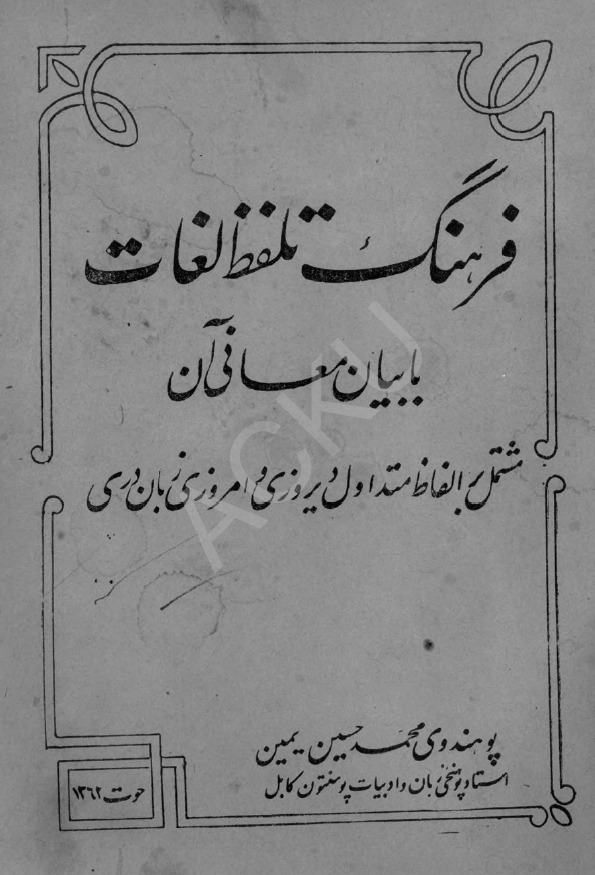 فرهنگ تلفظ لغات
با بیان معانی آن
مشتمل بر الفاظ متداول دیروزی و امروزی زبان دری
پوهندوی محمد حسین یمین
استاد پوهنځی زبان و ادبیات پوهنتون کابل
حوت ۱۳۶۲
ACKU